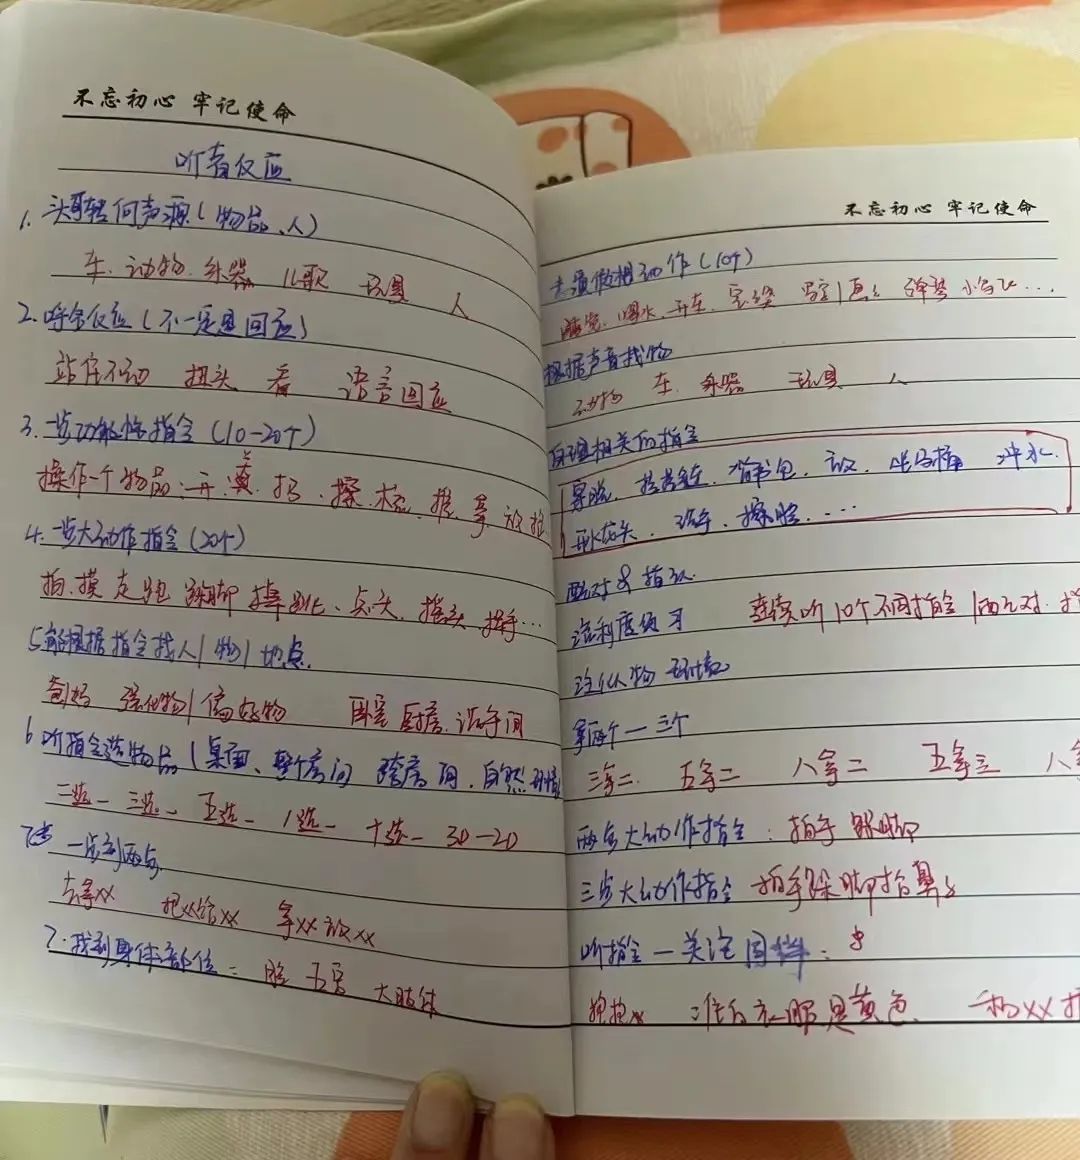 不忘初心 牢记使命
听者反应
1. 头可转向声源(物品、人)
车. 动物. 乐器 儿歌 玩具 人
2. 呼名反应(不一定是回应)
站住不动 扭头 看 语言回应
3. 一步功能性指令(10-20个)
操作一个物品: 开. 打. 擦. 梳. 推. 拿 放
4. 一步大动作指令(20个)
拍. 摸 走 跑 跺脚 蹲 跳、点头、摇头 挥手…
5. 能根据指令找人/物/地点.
爸妈 强化物/偏好物 卧室 厨房. 洗手间
6 听指令选物品(桌面、整个房间 跨房间. 自然环境
二选一 三选一 五选一 八选一 十选一 3D-2D
一步到两步
去拿xx 把xx给xx 拿xx放xx
7. 找到身体部位: 脸 五官 大肢体
不忘初心 牢记使命
去 做相 动作(10个)
喝水 开车 写字/画画 弹琴 小鸟飞…
根据声音找物
动物 车. 乐器 玩具 人
自理相关的指令
穿脱. 拉拉链. 背书包. 放. 坐马桶 冲水.
开水龙头. 洗手. 擦脸. …
配对&指认.
流利度练习 连续听10个不同指令/配对.
泛化人物 环境
拿两个一三个
三拿二. 五拿二 八拿二 五拿三 八拿
两步大动作指令: 拍手 跺脚
三步大动作指令 拍手跺脚指鼻子
听指令一关注同伴:
抱抱x 谁的衣服是黄色 和xx